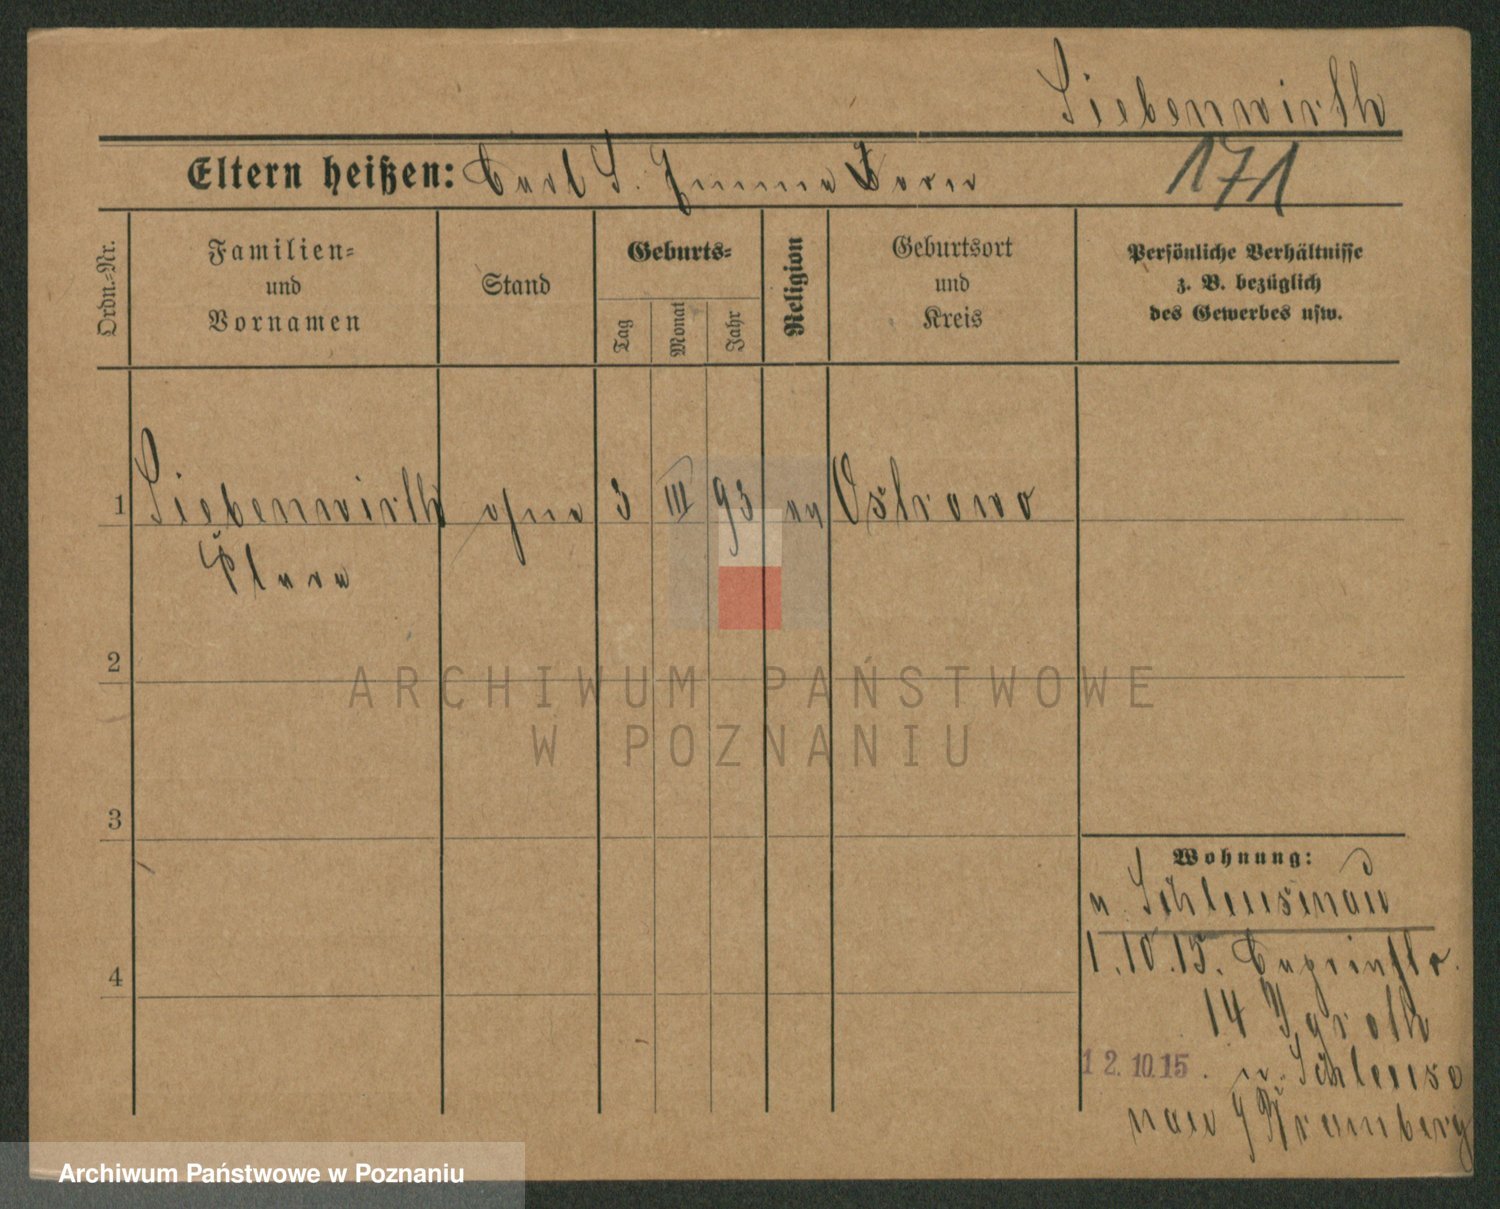 Siebenwirth
Eltern heißen: Carl S. Emma Dorn
171
Ordn.-Nr.
Familien-
und
Vornamen
Stand
Geburts-
Tag
Monat
Jahr
Religion
Geburtsort
und
Kreis
Persönliche Verhältnisse
z. B. bezüglich
des Gewerbes usw.
1 Siebenwirth ohne 3 III 93 ev Ostrowo
Clara
2
3
4
Wohnung:
n. Schleusenau
1.10.15.
14
12.10.15. n. Schleuse
nau Kromberg
ARCHIWUM PAŃSTWOWE
W POZNANIU
Archiwum Państwowe w Poznaniu